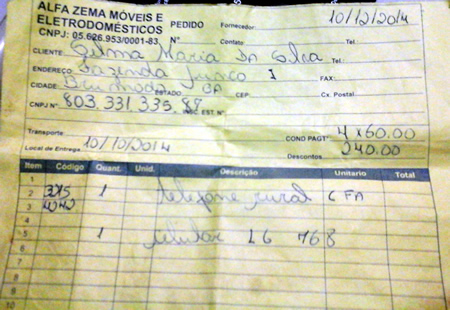 ALFA ZEMA MÓVEIS E ELETRODOMÉSTICOS
CNPJ: 05.626.953/0001-83
PEDIDO Nº
Fornecedor: 10/12/2014
Contato: Tel.
CLIENTE: Maria DA Silva Tel
ENDEREÇO: Fazenda Junco I FAX:
CIDADE: ESTADO BA CEP: Cx. Postal
CNPJ Nº 803.331.335.87 INSC EST. Nº
Transporte: COND PAGTº 4 x 60.00
Local de Entrega: 10/10/2014 Descontos 240.00
Item Código Quant. Unid. Descrição Unitario Total
1
2 3215 1 telefone rural CFA
3 4042
4
5 1 celular LG
6
7
8
9
10